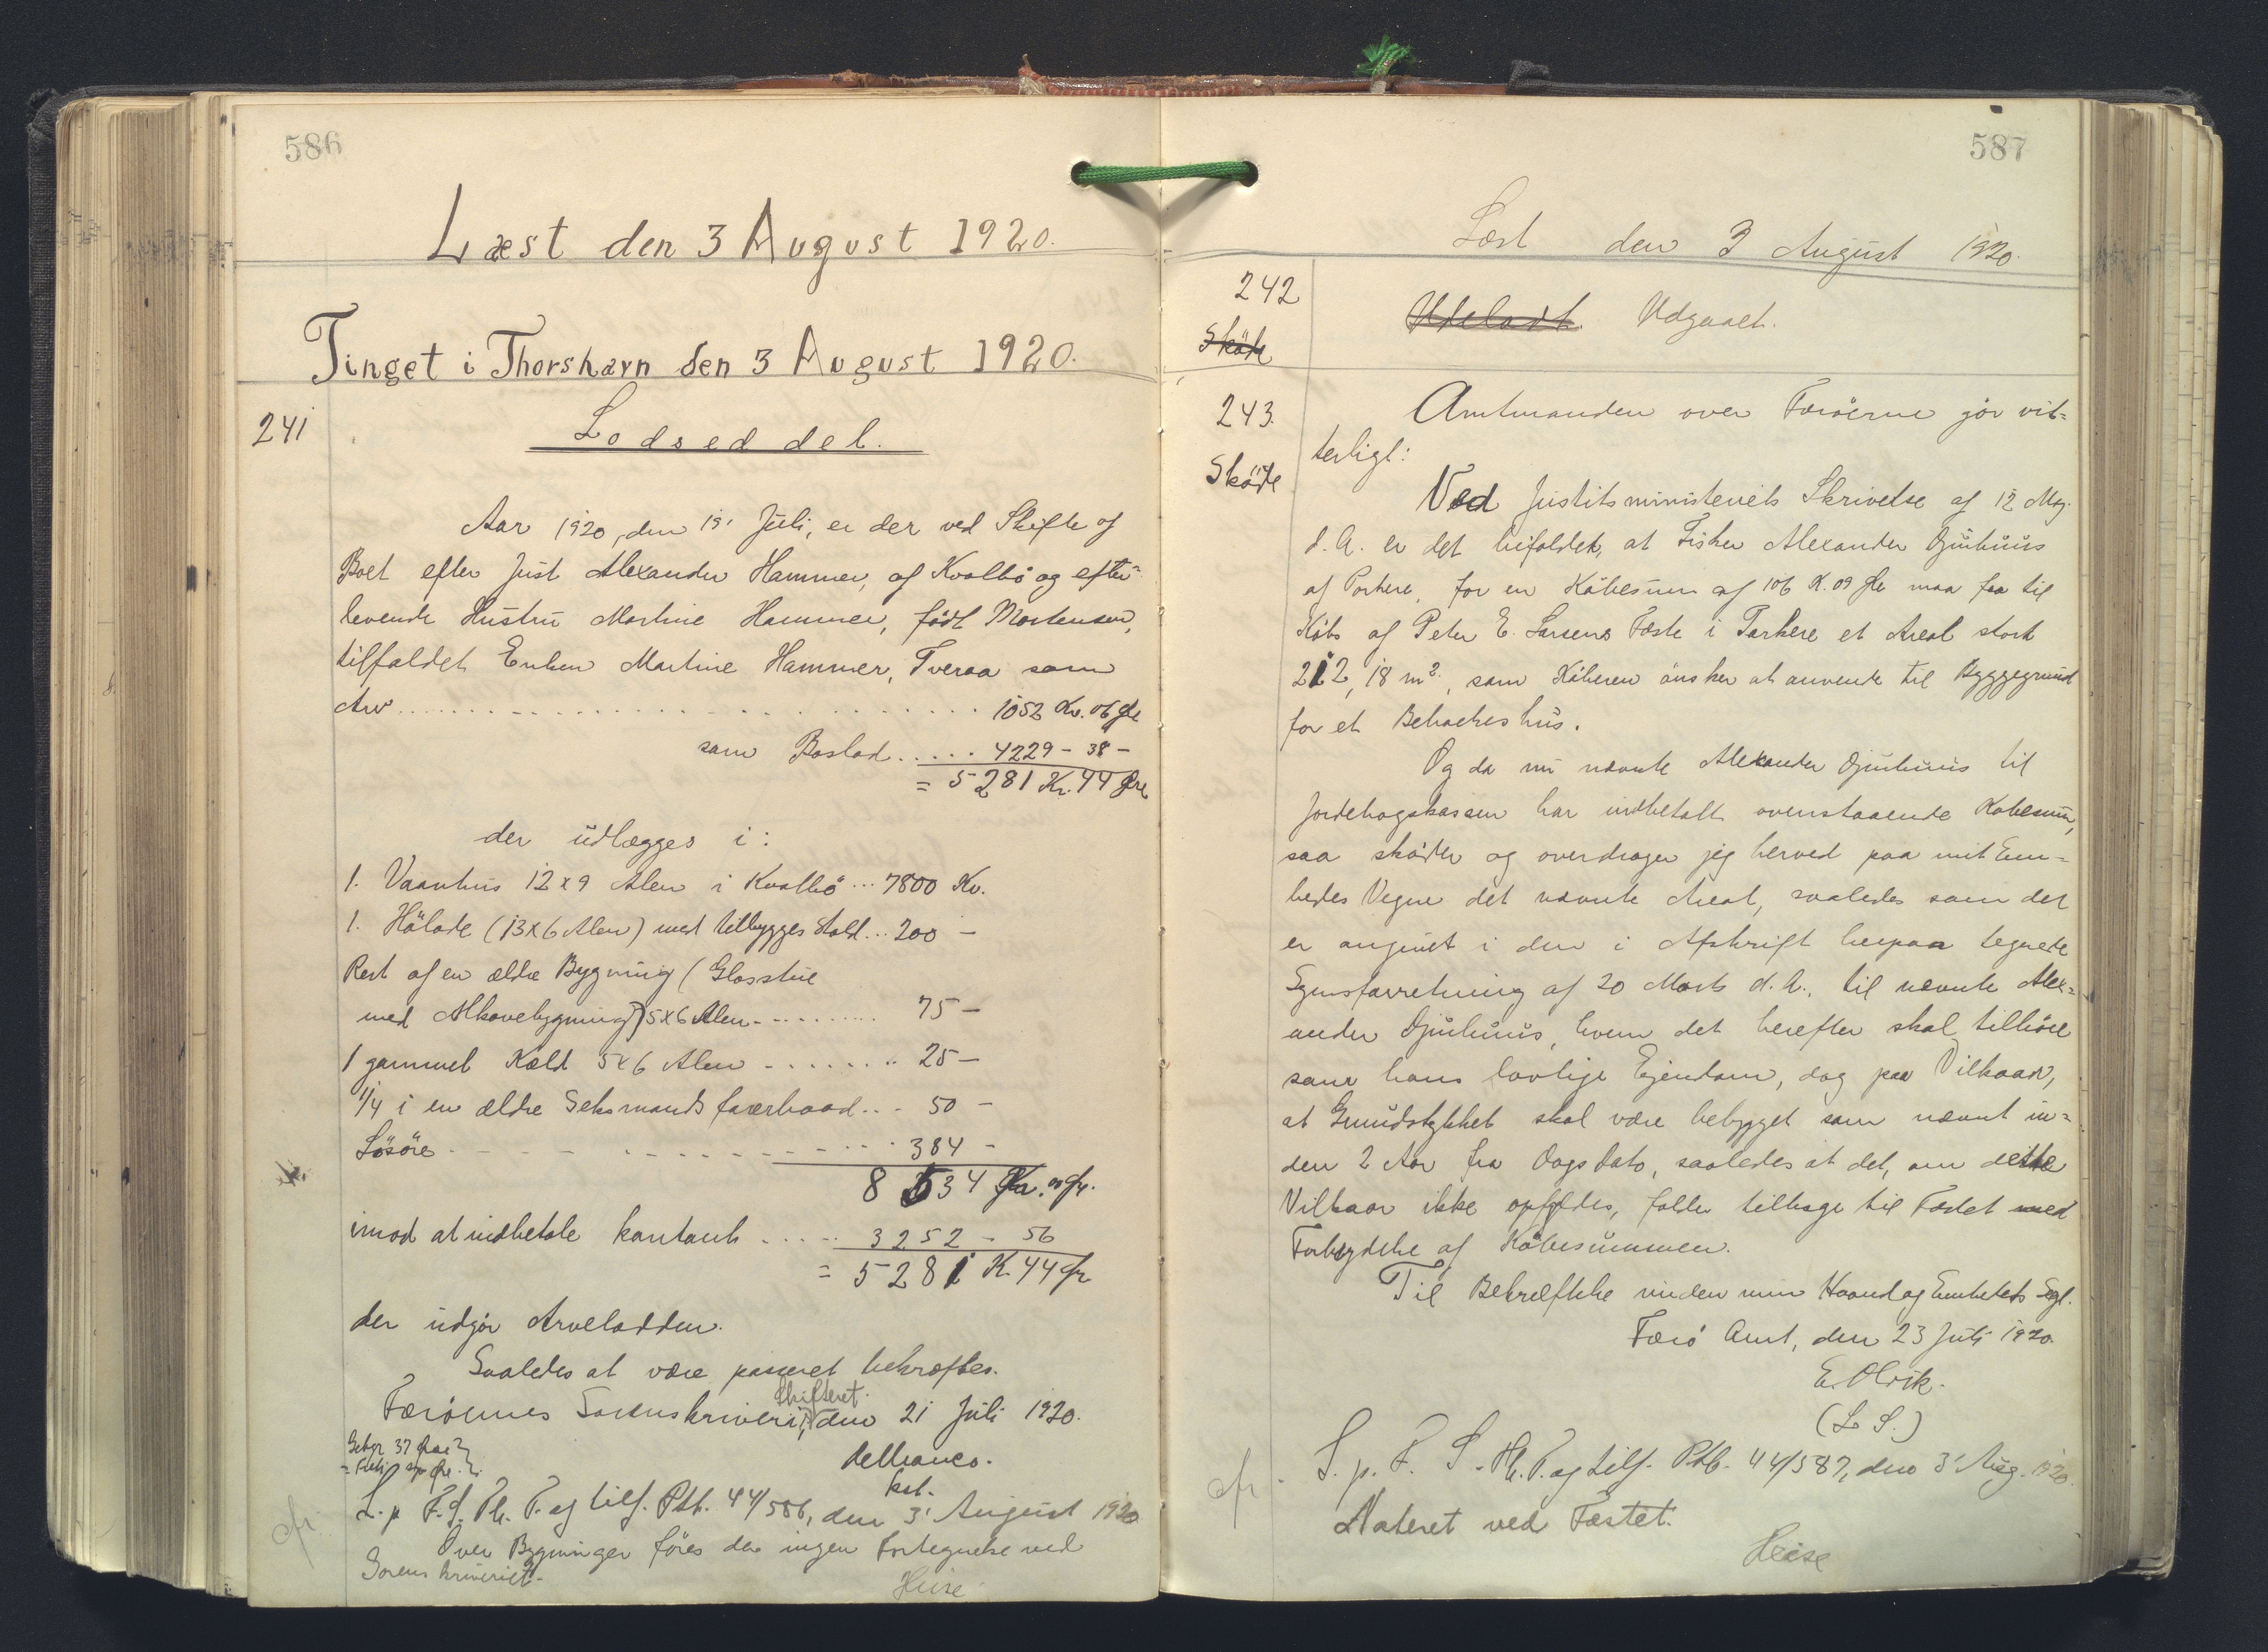 586
Læst den 3 August 1920.
Tinget i Thorshavn den 3 August 1920.
241
Lodseddel.
Aar 1920, den 19' Juli, er der ved Skifte af
Boet efter Just Alexander Hammer, af Kvalbö og efter-
levende Hustru Martine Hammer, född Mortensen,
tilfaldet Enken Martine Hammer, Tveraa som
Arv 1052 Kr. 06 Øre
som Boslod 4229 - 38 -
= 5281 Kr. 44 Øre
der udlægges i:
1. Vaanhus 12 x 9 Alen i Kvalbö ... 7800 Kr.
1. Hölade (13 x 6 Alen) med tilbygges Stald ... 200 -
Rest af en ældre Bygning (Glasstue
med Alkovebygning) 5x6 Alen 75 -
1 gammel Kæld 5 x 6 Alen 25 -
1/4 i en ældre Seksmandsfarerbaad ... 50 -
Lösöre 384 -
8534 Kr. " Ør.
imod at indbetale kontant 3252 - 56
= 5281 K. 44 Ør.
der udgör Arvelodden.
Saaledes at være passeret bekræftes.
Skifteret.
Færöernes Sorenskriveri, den 21 Juli 1920.
Gebyr 37 Øre
kst.
L. p. F. S. Th. T. og tilf. Ptb. 44/586, den 3' August 1920
Over Bygninger föres der ingen Fortegnelse ved
Sorenskriveriet.
Heise
cfr.
587
Læst den 3 August 1920.
242
Sköde
Udeladt. Udgaaet.
243.
Sköde
Amtmanden over Færöerne gör vit-
terligt:
Ved Justitsministeriets Skrivelse af 12 Maj
d. A. er det bifaldet, at Fisker Alexander Djurhuus
af Porkere, for en Köbesum af 106 K. 09 Øre maa faa til
Köbs af Peter E. Larsens Fæste i Porkere et Areal stort
212,18 m², som Köberen önsker at anvende til Byggegrund
for et Beboelseshus.
Og da nu nævnte Alexander Djurhuus til
Jordebogskassen har indbetalt ovenstaaende Köbesum,
saa sköder og overdrager jeg herved paa mit Em-
bedes Vegne det nævnte Areal, saaledes som det
er angivet i den i Afskrift herpaa tegnede
Synsforretning af 20 Marts d. A., til nævnte Alex-
ander Djurhuus, hvem det herefter skal tilhöre
som hans lovlige Ejendom, dog paa Vilkaar,
at Grundstykket skal være bebygget som nævnt in-
den 2 Aar fra Dags Dato, saaledes at det, om dette
Vilkaar ikke opfyldes, falder tilbage til Fæstet med
Forbrydelse af Köbesummen.
Til Bekræftelse under min Haand og Embedets Segl.
Færö Amt, den 23 Juli 1920.
E. Olrik.
(L. S.)
cfr.
L. p. F. S. Th. T. og tilf. Ptb. 44/587, den 3' Aug. 1920.
Noteret ved Fæstet.
Heise